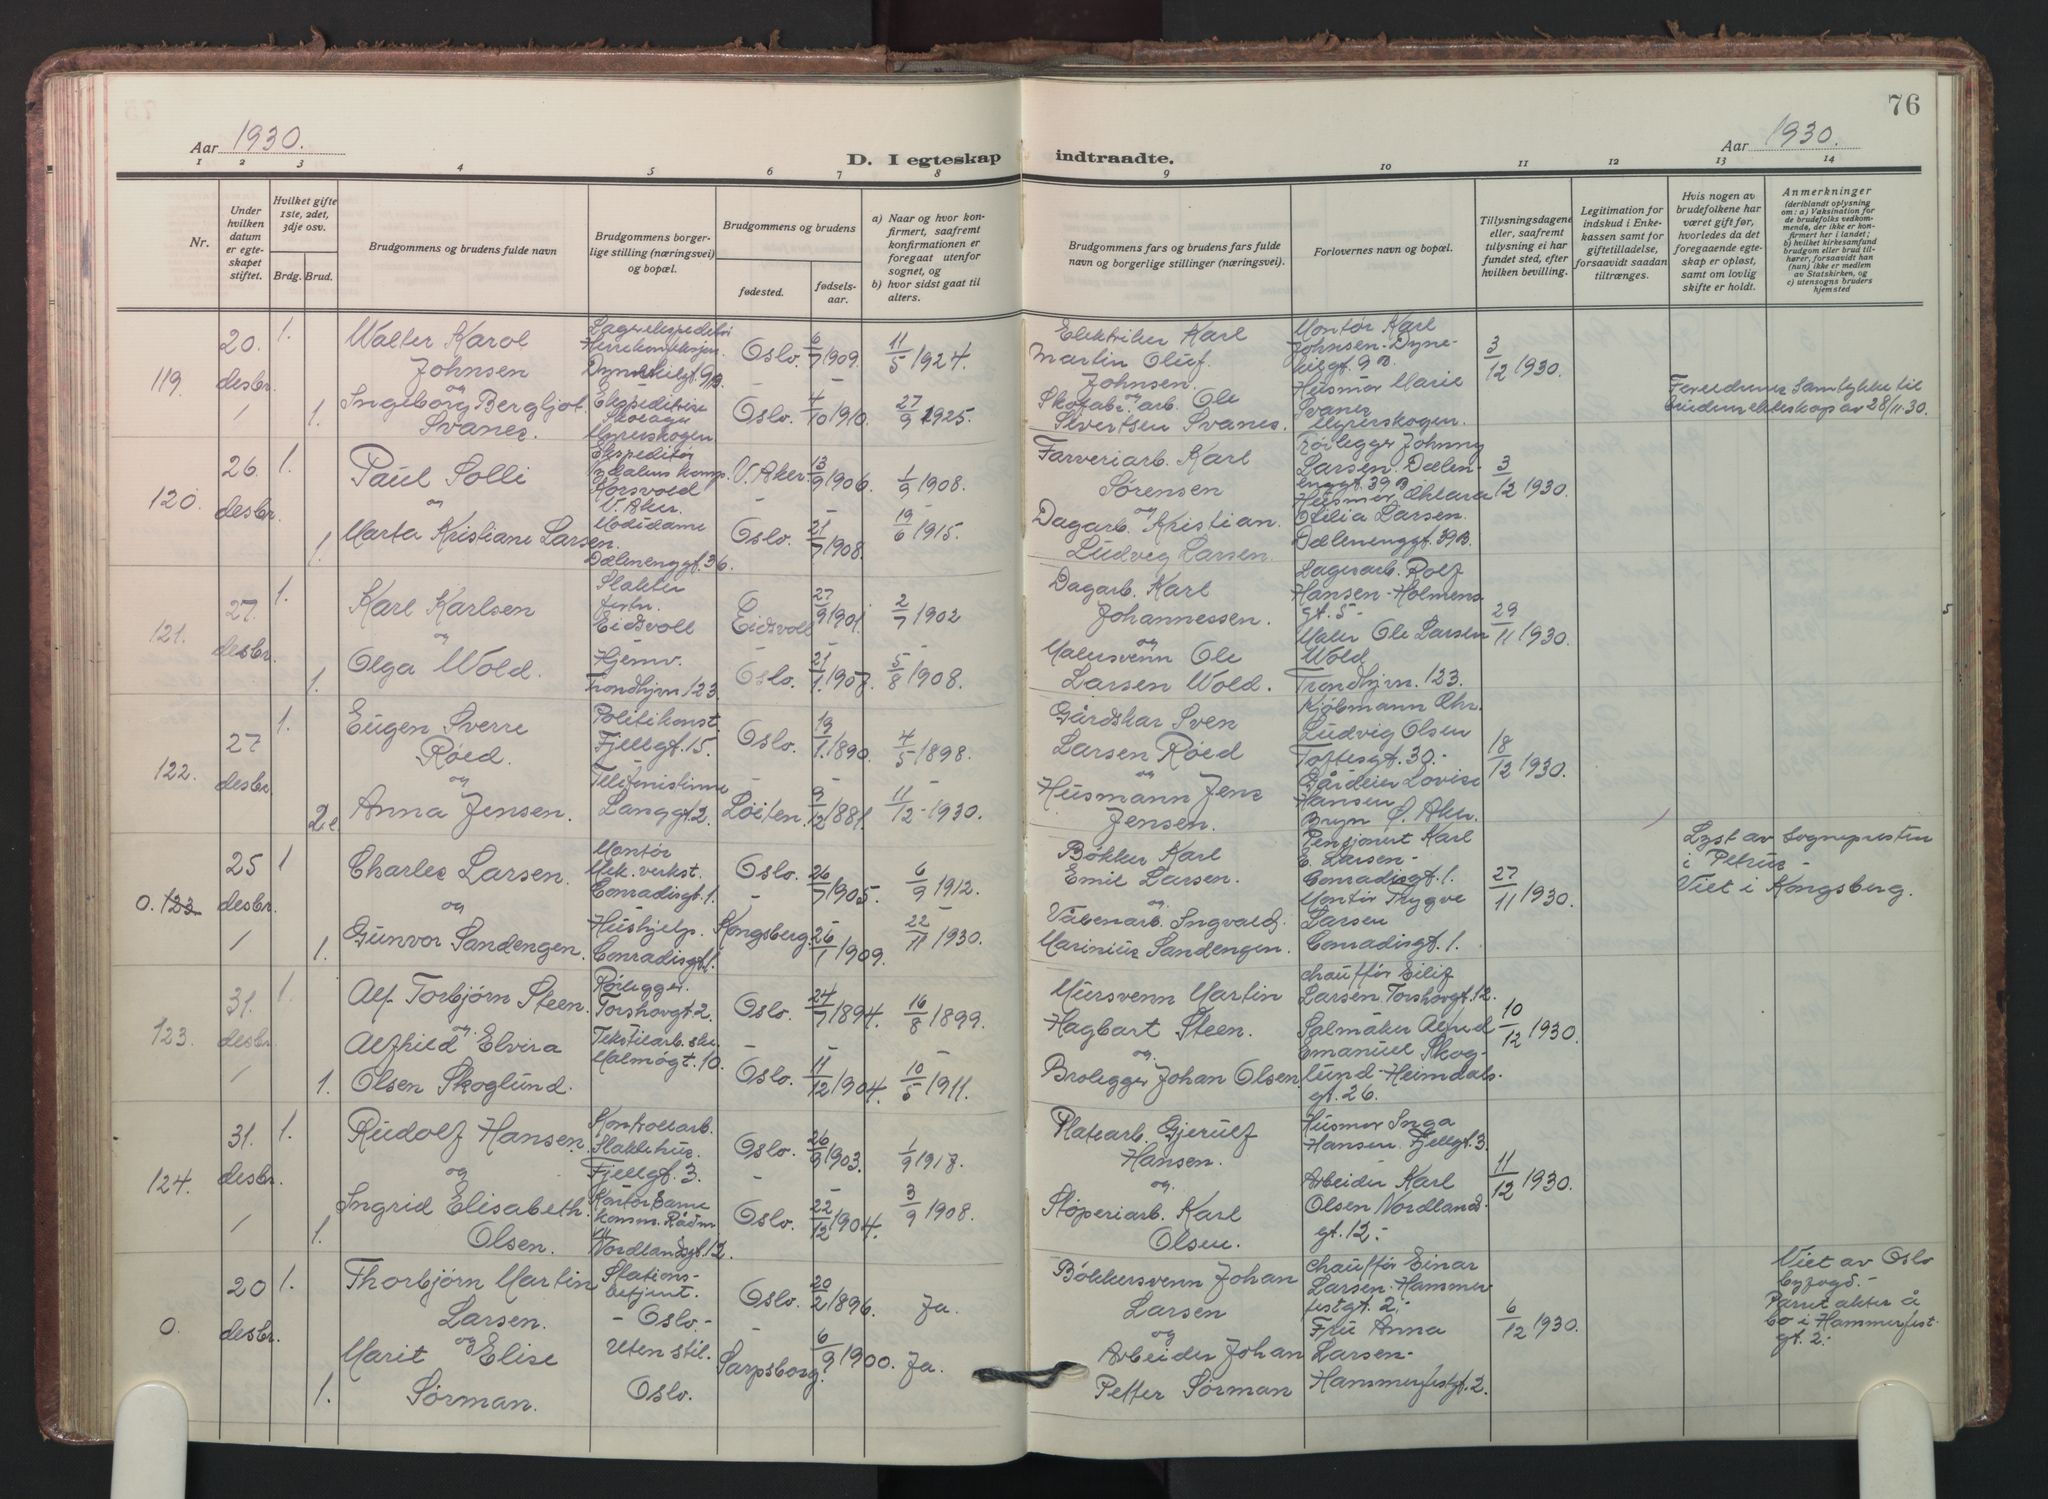 76
Aar 1930.
Aar 1930.
D. I egteskap indtraadte.
1 2 3 4 5 6 7 8 9 10 11 12 13 14
Nr.
Under hvilken datum er egteskapet stiftet.
Hvilket gifte 1ste, 2det, 3dje osv.
Brdg. Brud.
Brudgommens og brudens fulde navn
Brudgommens borgerlige stilling (næringsvei) og bopæl.
Brudgommens og brudens
fødested. fødselsaar.
a) Naar og hvor konfirmert, saafremt konfirmationen er foregaat utenfor sognet, og
b) hvor sidst gaat til alters.
Brudgommens fars og brudens fars fulde navn og borgerlige stillinger (næringsvei).
Forlovernes navn og bopæl.
Tillysningsdagene eller, saafremt tillysning ei har fundet sted, efter hvilken bevilling.
Legitimation for indskud i Enkekassen samt for giftetilladelse, forsaavidt saadan tiltrænges.
Hvis nogen av brudefolkene har været gift før, hvorledes da det foregaaende egteskap er opløst, samt om lovlig skifte er holdt.
Anmerkninger
(deriblandt oplysning om: a) Vaksination for de brudefolks vedkommende, der ikke er konfirmert her i landet; b) hvilket kirkesamfund brudgom eller brud tilhører, forsaavidt han (hun) ikke er medlem av Statskirken, og c) utensogns bruders hjemsted
119.
20. desbr.
1.
Walter Karol
Johnsen
Dynekilgt. 9B
Oslo. 6/7 1909. 11/5 1924.
Elektriker Karl
Martin Oluf
Johnsen.
Montør Karl
Johnsen - Dyne-
kilgt. 9B.
Husmor Marie
Svanes
Myrerskogen.
3/12 1930.
1.
og
Ingeborg Bergljot
Svanes.
Ekspeditrise
Myrerskogen.
Oslo. 4/10 1910. 27/9 1925.
og
Skofabr. arb. Ole
Sivertsen Svanes.
Foreldrenes samtykke til
brudens ekteskap av 28/11-30.
120.
26. desbr.
1.
Paul Solli
og
Ekspeditør
Korsvold
V. Aker.
V. Aker. 13/9 1906. 1/9 1908.
Farveriarb. Karl
Sørensen
Rørlegger Johnny
Larsen. Dælen-
enggt. 39B
Husmor
Otilia Larsen.
Dælenenggt. 39B.
3/12 1930.
1.
Marta Kristiane Larsen.
Modidame
Dælenenggt. 36.
Oslo. 21/7 1908. 19/6 1915.
og
Dagarb. Kristian
Ludvig Larsen.
121.
27. desbr.
1.
Karl Karlsen
og
Slakter
Eidsvoll
Eidsvoll 27/9 1901. 2/7 1902
Dagarb. Karl
Johannessen.
Lagerarb. Rolf
Hansen - Holmens
gt. 5 -
Maler Ole Larsen
Wold
Trondhjvn. 123.
29/11 1930.
1.
Olga Wold.
Hjemv.
Trondhjvn. 123.
Oslo. 21/1 1907. 5/8 1908.
og
Malersvenn Ole
Larsen Wold.
122.
27 desbr.
1.
Eugen Sverre
Røed.
og
Politikonst.
Fjellgt. 15.
Oslo. 19/1 1890. 4/5 1898.
Gårdskar Sven
Larsen Røed
Kjøbmann Chr.
Ludvig Olsen
Toftesgt. 30. -
Gårdeier Lovise
Hansen
Bryn Ø. Aker.
18/12 1930.
2.
Anna Jensen.
Telefonistinne
Langgt. 2.
Løiten. 9/12 1881. 11/12 - 1930.
og
Husmann Jens
Jensen.
0. 123
25 desbr.
1
Charles Larsen.
og
Montør
Mek. verkst.
Conradisgt. 1.
Oslo. 26/7 1905. 6/9 1912.
Bøkker Karl
Emil Larsen.
Pensjonert Karl
E. Larsen -
Conradisgt. 1.
Montør Trygve
Larsen
Conradisgt. 1.
27/11 1930.
Lyst av Sognepresten
i Petrus -
Viet i Kongsberg.
1.
Gunvor Sandengen.
Hushjelp.
Conradisgt. 1.
Kongsberg. 26/1 1909. 22/11 1930.
og
Våbenarb. Ingvald
Marinius Sandengen.
123.
31. desbr.
1.
Alf Torbjørn Steen
og
Rørlegger.
Torshovgt. 2.
Oslo. 24/7 1894. 16/8 1899.
Mursvenn Martin
Hagbart Steen.
Chauffør Eilif
Larsen. Torshovgt. 12.
Salmaker Alfred
Emanuel Skog-
lund - Heimdals-
gt. 26.
10/12 1930.
1.
Alfhild Elvira
Olsen Skoglund.
Tekstilarb. ske
Malmøgt. 10.
Oslo. 11/12 1904. 10/5 1911.
og
Brolegger Johan Olsen
124.
31. desbr.
1.
Rudolf Hansen.
og
Kontrollarb.
Slaktehus.
Fjellgt. 3.
Oslo. 26/9 1903. 1/9 1917.
Platearb. Gjerulf
Hansen.
Husmor Inga
Hansen. Fjellgt. 3.
Arbeider Karl
Olsen Nordlands-
gt. 12. -
11/12 1930.
1.
Ingrid Elisabeth
Olsen.
Kontordame
Nordlandsgt. 12.
Oslo. 22/12 1904. 3/9 1908.
og
Støperiarb. Karl
Olsen.
0.
20 desbr.
1.
Thorbjørn Martin
Larsen.
og
Stations-
betjent.
- Oslo. -
Oslo. 20/2 1896. Ja.
Bøkkersvenn Johan
Larsen
Chauffør Einar
Larsen - Hammer-
festgt. 2. -
Fru Anna
Larsen -
Hammerfestgt. 2.
6/12 1930.
Viet av Oslo
byfogd. -
Parret akter å
bo i Hammerfest
gt. 2. -
1.
Marit Elise
Sørman.
Uten stil.
Oslo.
Sarpsborg. 6/9 1900. Ja.
og
Arbeider Johan
Petter Sørman